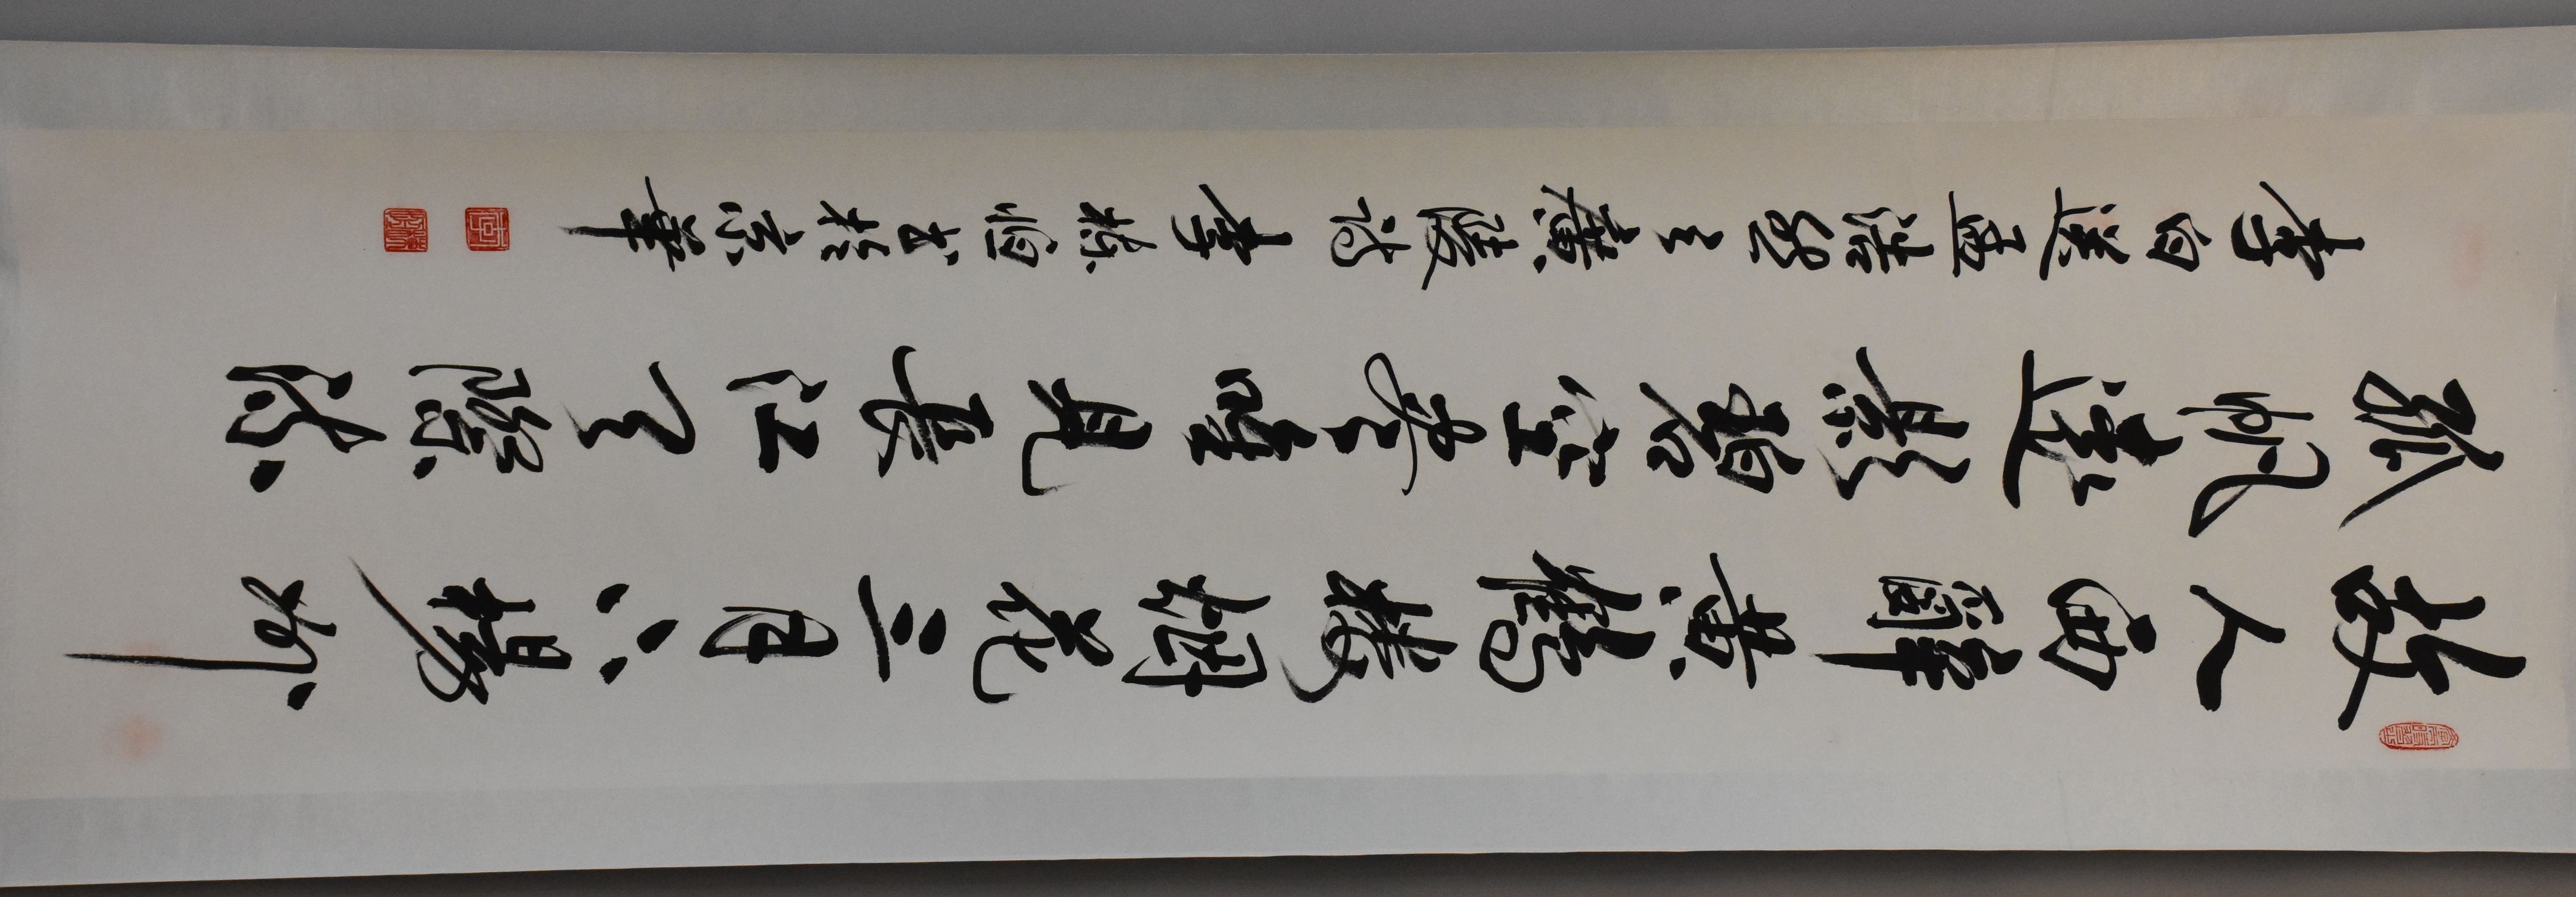 故人西辭黄鶴樓烟花三月下揚州
孤帆遠影碧空盡唯見長江天際流
李白送孟浩然之廣陵詩 李恒書於京華